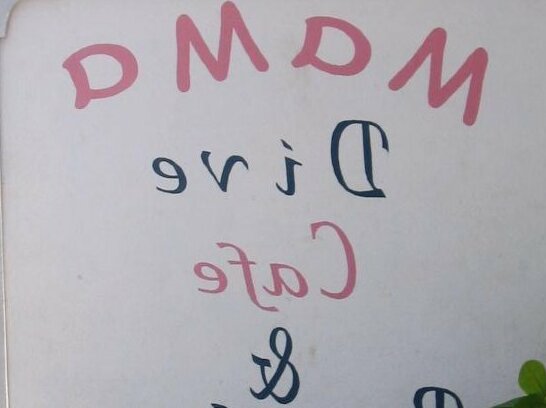 MaMa
Dive
Cafe
&